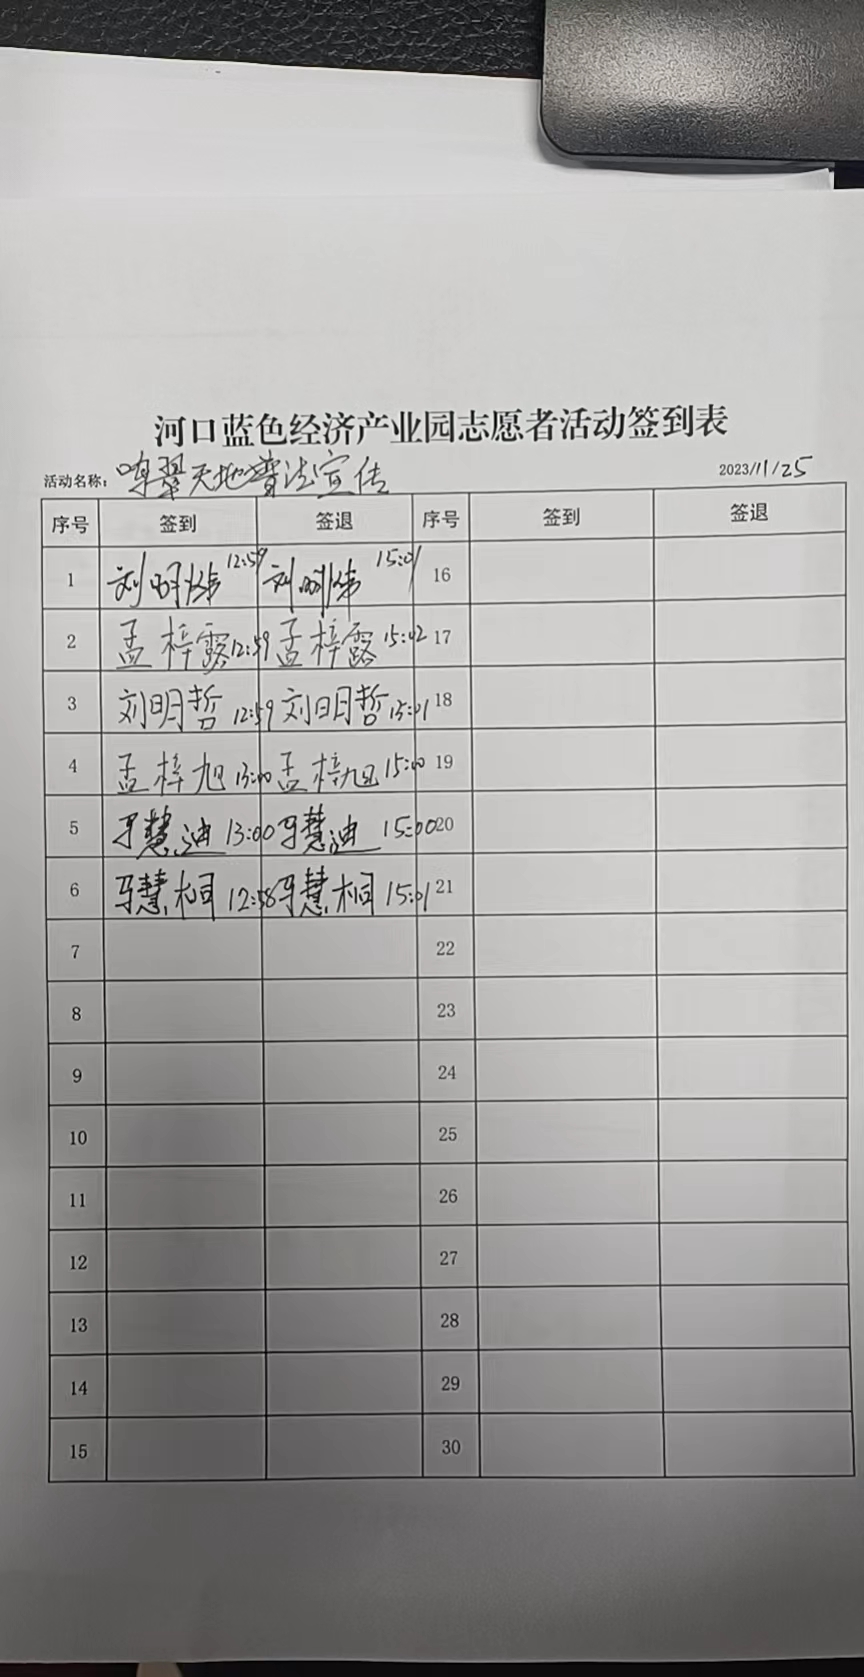 河口蓝色经济产业园志愿者活动签到表
活动名称: 天地普法宣传 2023/11/25
序号 签到 签退 序号 签到 签退
1 刘明炜 12:59 刘明炜 15:01 16
2 孟梓露 12:59 孟梓露 15:02 17
3 刘明哲 12:59 刘明哲 15:01 18
4 孟梓旭 13:00 孟梓旭 15:00 19
5 马慧迪 13:00 马慧迪 15:00 20
6 马慧桐 12:58 马慧桐 15:01 21
7 22
8 23
9 24
10 25
11 26
12 27
13 28
14 29
15 30